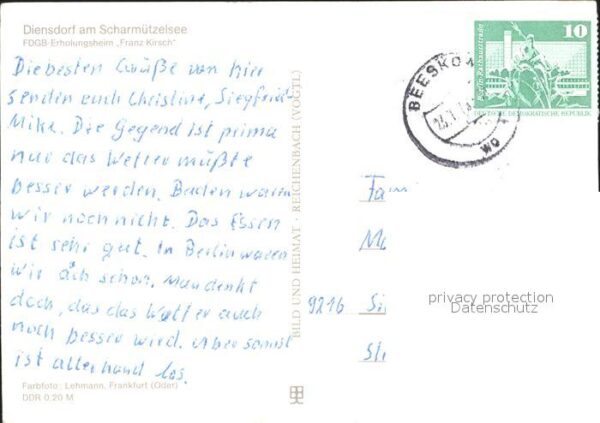 Diensdorf am Scharmützelsee
FDGB-Erholungsheim "Franz Kirsch"
Die besten Grüße von hier
senden euch Christine, Siegfried
Mike. Die Gegend ist prima
nur das Wetter müßte
besser werden. Baden waren
wir noch nicht. Das Essen
ist sehr gut. In Berlin waren
wir auch schon. Man denkt
doch, das das Wetter auch
noch besser wird. Aber sonst
ist allerhand los.
Farbfoto: Lehmann, Frankfurt (Oder)
DDR 0,20 M
BILD UND HEIMAT · REICHENBACH (VOGTL)
BEESKOW
10
Berlin, Rathausstraße
DEUTSCHE DEMOKRATISCHE REPUBLIK
Fam
9216
privacy protection
Datenschutz